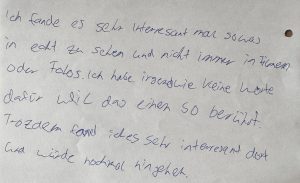 Ich fande es sehr interresant mal sowas
in echt zu sehen und nicht immer in Filmen
oder Fotos. Ich habe irgendwie keine Worte
dafür wil das einen so berührt.
Trozdem fand ich es sehr interresant dort
und würde nochmal hingehen.